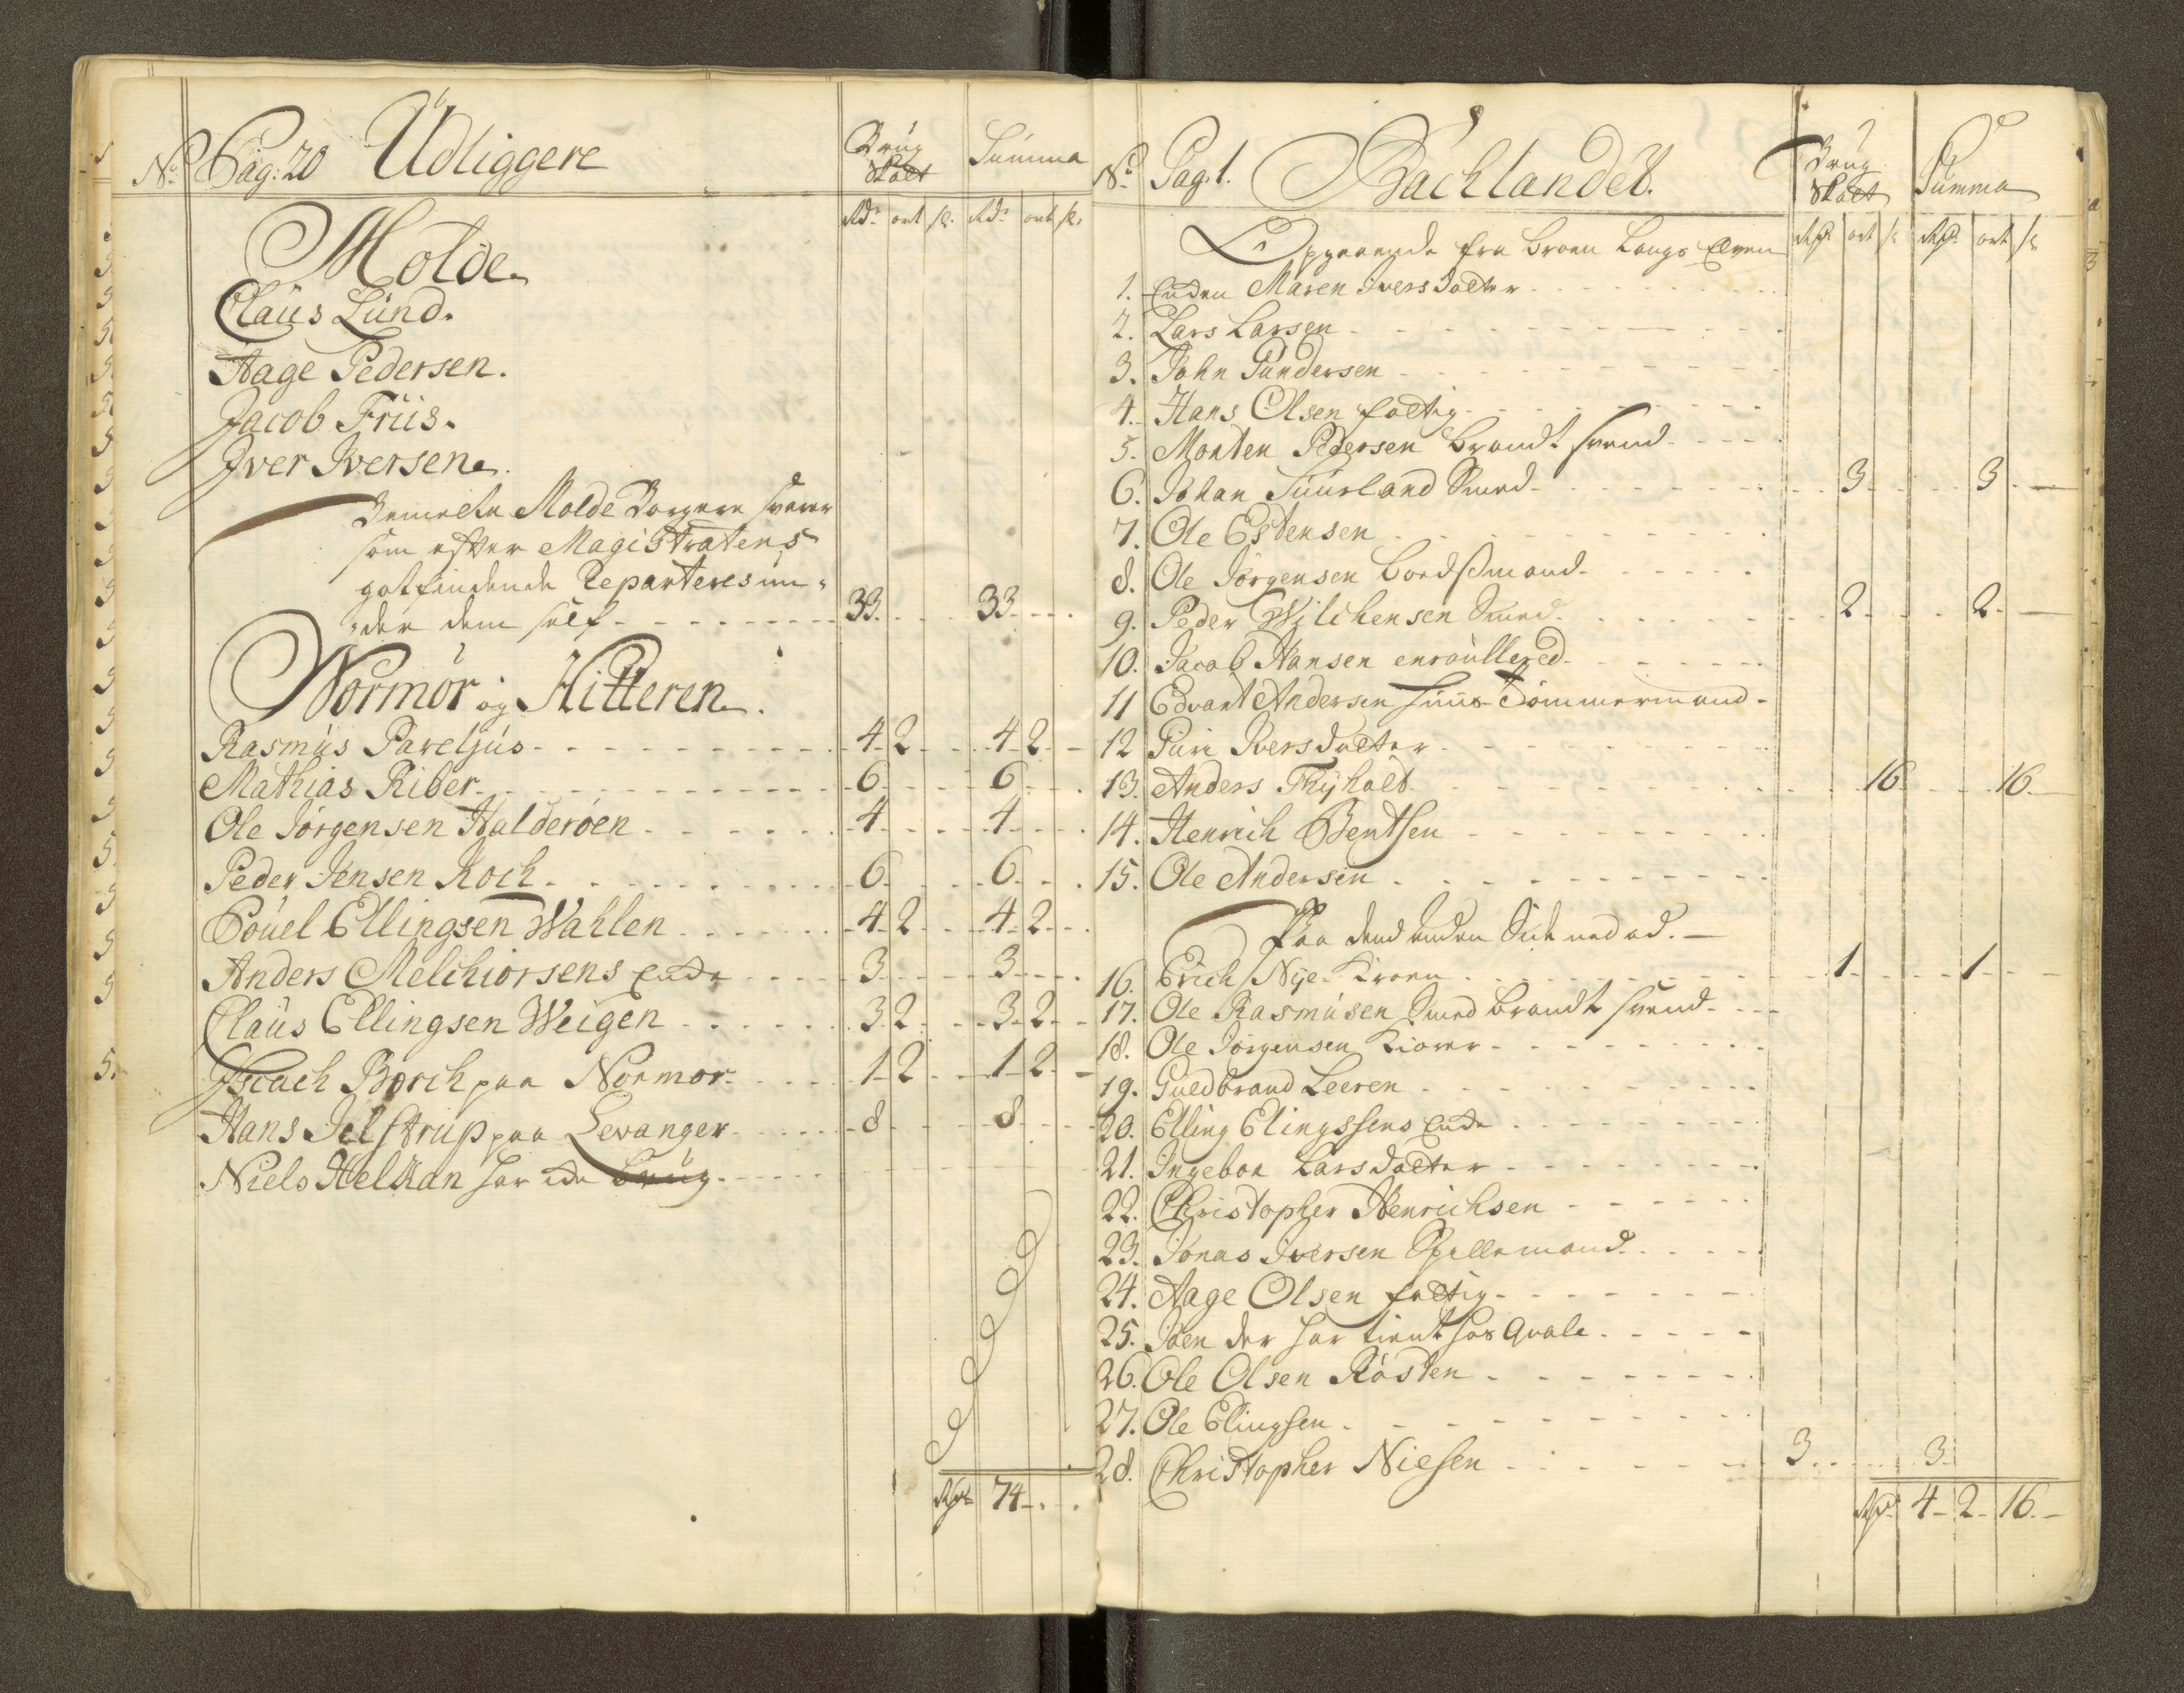 No Pag: 20 Udliggere Brug Skatt Summa
Rdr ort s. Rdr ort s.
Molde
Claus Lund.
Aage Pedersen.
Jacob Friis.
Iver Iversen.
Bemelte Molde Borgere svarer
som efter Magistratens
gotfindende Reparteres im¬
¬der dem self - 33. 33.
Normør og Hitteren.
Rasmus Pareljus - 4 - 2 4 - 2
Mathias Riber - 6 6
Ole Jörgensen Halderöen - 4 4
Peder Jensen Koch - 6 6
Povel Ellingsen Wahlen - 4 - 2 4 - 2
Anders Melchiorsens Encke - 3 3
Claus Ellingsen Weigen - 3 2 3 - 2
Isach Borch paa Normør - 1 - 2 1 - 2
Hans Jelstrup paa Levanger - 8 8
Niels Helkan har ide brug -
Rdr 74 - . .
No Pag. 1. Bachlandet. Brug Skatt Summa
Rdr ort s Rdr ort s
Opgaaende fra broen langs Elven
1. Enken Maren Ivers Dotter
2. Lars Larsen
3. John Gundersen
4. Hans Olsen fattig
5. Morten Pedersen brandt svend
6. Johan Suurland Smed - 3 3
7. Ole Estensen
8. Ole Jörgensen boedsmand
9. Peder Wilchensen Smed - 2 2
10. Jacob Hansen enroullered
11 Edvart Andersen Huus Tömmermand
12 Guri Ivers dotter
13. Anders Thyholt - 16 16
14. Henrich Bentsen
15. Ole Andersen
Paa dend anden Side ned ad.
16. Erich Nye-Kroen - 1 1
17. Ole Rasmusen Smed brandt svend
18. Ole Jörgensen Kiorer
19. Guldbrand Leeren
20. Elling Elingssens Encke
21. Ingebor Lars dotter
22. Christopher Henrichsen
23. Jonas Iversen Spillemand
24. Aage Olsen fattig
25. Joen der har tient hos Quale
26. Ole Olsen Røsten
27. Ole Elingsen
28. Christopher Nielsen - 3 3
Rdr 4 - 2 - 16